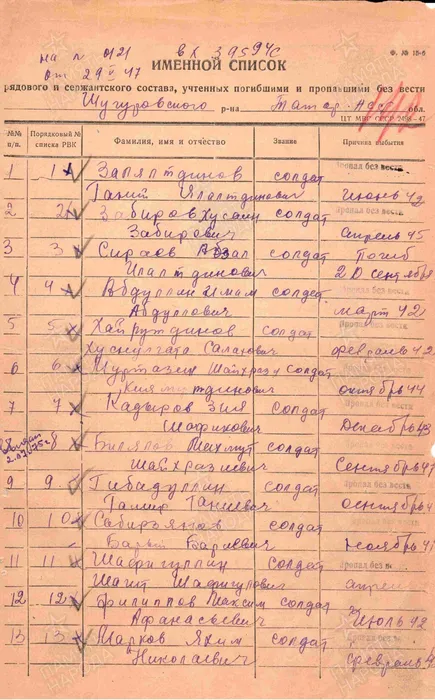 на № 0121 вх 39594с
от 29 V 47
Ф. № 10-б
ИМЕННОЙ СПИСОК
рядового и сержантского состава, учтенных погибшими и пропавшими без вести
Шугуровского р-на Татар. АССР обл.
ЦТ МВС СССР 2494-47
№№ п/п. Порядковый № списка РВК Фамилия, имя и отчество Звание Причина выбытия
1 1 Залялтдинов солдат Пропал без вести
Ялалтдинович июнь 42
2 2 Забиров Хусаин солдат Пропал без вести
Забирович апрель 45
3 3 Сираев солдат Погиб
Илалтдинович 20 сентября
4 4 Абдуллин Имам солдат Пропал без вести
Абдуллович март 42
5 5 Хайрутдинов солдат Пропал без вести
Салахович февраль 42
6 6 солдат Пропал без вести
октябрь 44
7 7 Кадыров Зия солдат Пропал без вести
Шафикович декабрь 43
8 8 Билялов Махмут солдат Пропал без вести
Шайхразиевич сентябрь 41
9 9 Гибадуллин солдат Пропал без вести
Ганиевич
10 10 солдат Пропал без вести
Бариевич ноябрь 41
11 11 Шафигуллин солдат Пропал без вести
Шагит Шафигулович апрель
12 12 Филиппов Максим солдат Пропал без вести
Афанасьевич июль 42
13 13 Марков Яким солдат Пропал без вести
Николаевич февраль 4